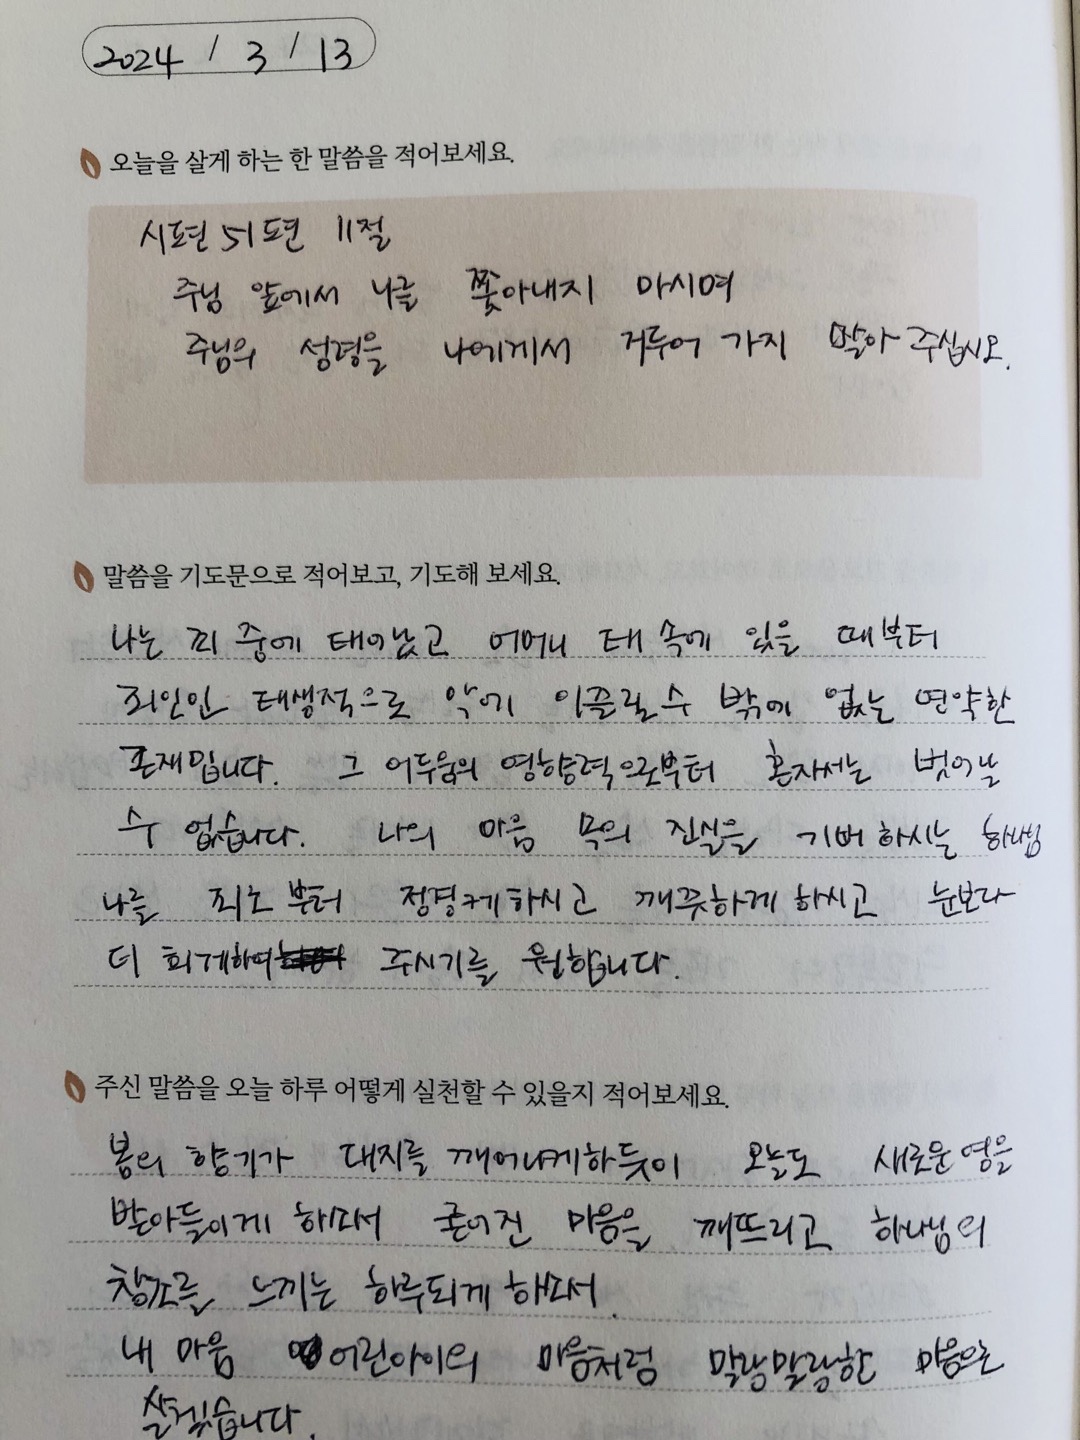 2024 / 3 / 13
오늘을 살게 하는 한 말씀을 적어보세요.
시편 51편 11절
주님 앞에서 나를 쫓아내지 마시며
주님의 성령을 나에게서 거두어 가지 말아 주십시오.
말씀을 기도문으로 적어보고, 기도해 보세요.
나는 죄 중에 태어났고 어머니 태 속에 있을 때부터
죄인인 태생적으로 악에 이끌릴 수 밖에 없는 연약한
존재입니다. 그 어두움의 영향력으로부터 혼자서는 벗어날
수 없습니다. 나의 마음 속의 진실을 기뻐하시는 하나님
나를 죄로부터 정결케하시고 깨끗하게 하시고 눈보다
더 희게하여 주시기를 원합니다.
주신 말씀을 오늘 하루 어떻게 실천할 수 있을지 적어보세요.
봄의 향기가 대지를 깨어나게하듯이 오늘도 새로운 영을
받아들이게 하소서 굳어진 마음을 깨뜨리고 하나님의
창조를 느끼는 하루되게 하소서.
내 마음 어린아이의 마음처럼 말랑말랑한 마음으로
살겠습니다.